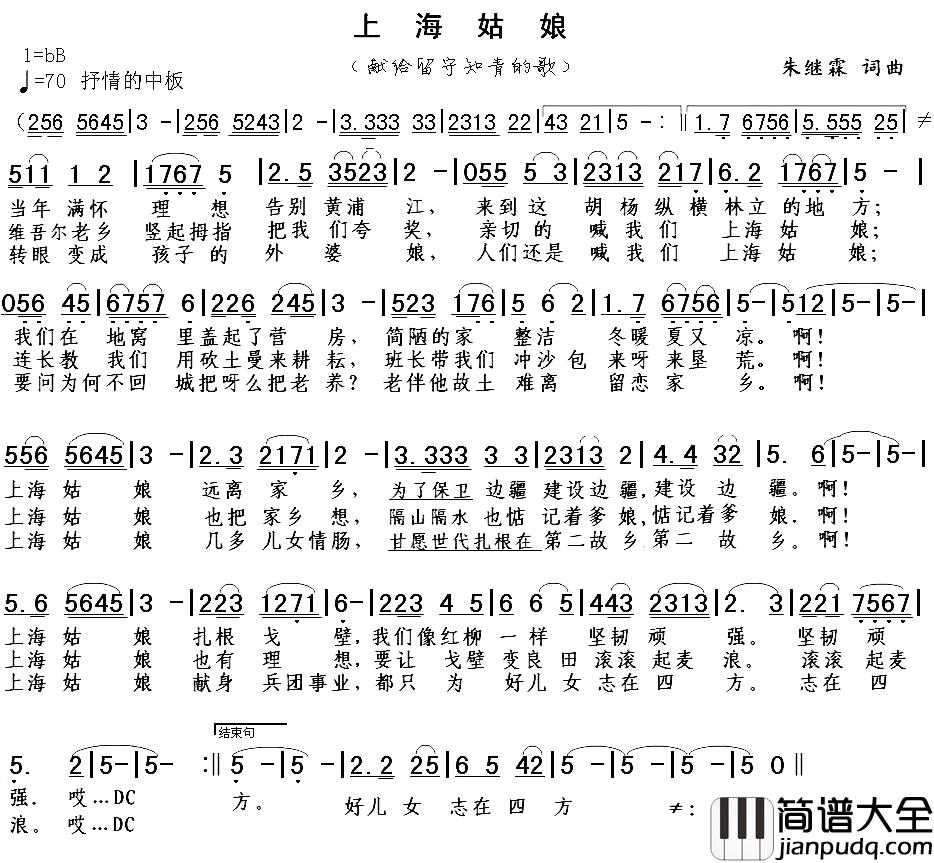 上海姑娘
1=bB
（献给留守知青的歌）
♩=70 抒情的中板
朱继霖 词曲
（256 5645|3 -|256 5243|2 -|3.333 33|2313 22|43 21|5 - :‖1.7 6756|5.555 25|≠
511 1 2|1767 5|2.5 3523|2 -|055 5 3|2313 217|6.2 1767|5 -|
当年 满怀 理 想 告别 黄浦 江， 来到这 胡杨纵横林立的地方；
维吾尔老乡 竖起拇指 把我们夸 奖， 亲切的 喊我们 上海姑 娘；
转眼 变成 孩子的 外 婆 娘， 人们还是喊我们 上海姑 娘；
056 45|6757 6|226 245|3 -|523 176|5 6 2|1.7 6756|5-|512|5-|5-|
我们在 地窝 里盖起了营 房， 简陋的家 整洁 冬暖夏又凉。啊！
连长教 我们 用砍土曼来耕 耘， 班长带我们 冲沙包 来呀来垦 荒。啊！
要问为何不回 城把呀么把老 养？ 老伴他故土 难离 留恋家 乡。啊！
556 5645|3 -|2.3 2171|2 -|3.333 3 3|2313 2|4.4 32|5. 6|5-|5-|
上海姑 娘 远离 家 乡， 为了保卫 边疆 建设边疆,建设 边 疆。啊！
上海姑 娘 也把 家乡 想， 隔山隔水 也惦 记着爹娘,惦记着爹 娘．啊！
上海姑 娘 几多 儿女情肠， 甘愿世代扎根在 第二故乡．第二 故 乡。啊！
5.6 5645|3 -|223 1271|6-|223 4 5|6 6 5|443 2313|2. 3|221 7567|
上海姑 娘 扎根 戈 壁，我们像红柳 一样 坚韧 顽 强。坚韧 顽
上海姑 娘 也有 理 想，要让 戈壁 变良田 滚滚起麦 浪。 滚滚 起麦
上海姑 娘 献身 兵团事业，都只 为 好儿女 志在四 方。志在 四
结束句
5. 2|5-|5- :‖5 -|5 -|2.2 25|6 5 42|5 -|5 -|5 0‖
强．哎…DC 方。 好儿女 志在四 方 ≠：
浪。哎…DC
简谱大全
jianpudq.com